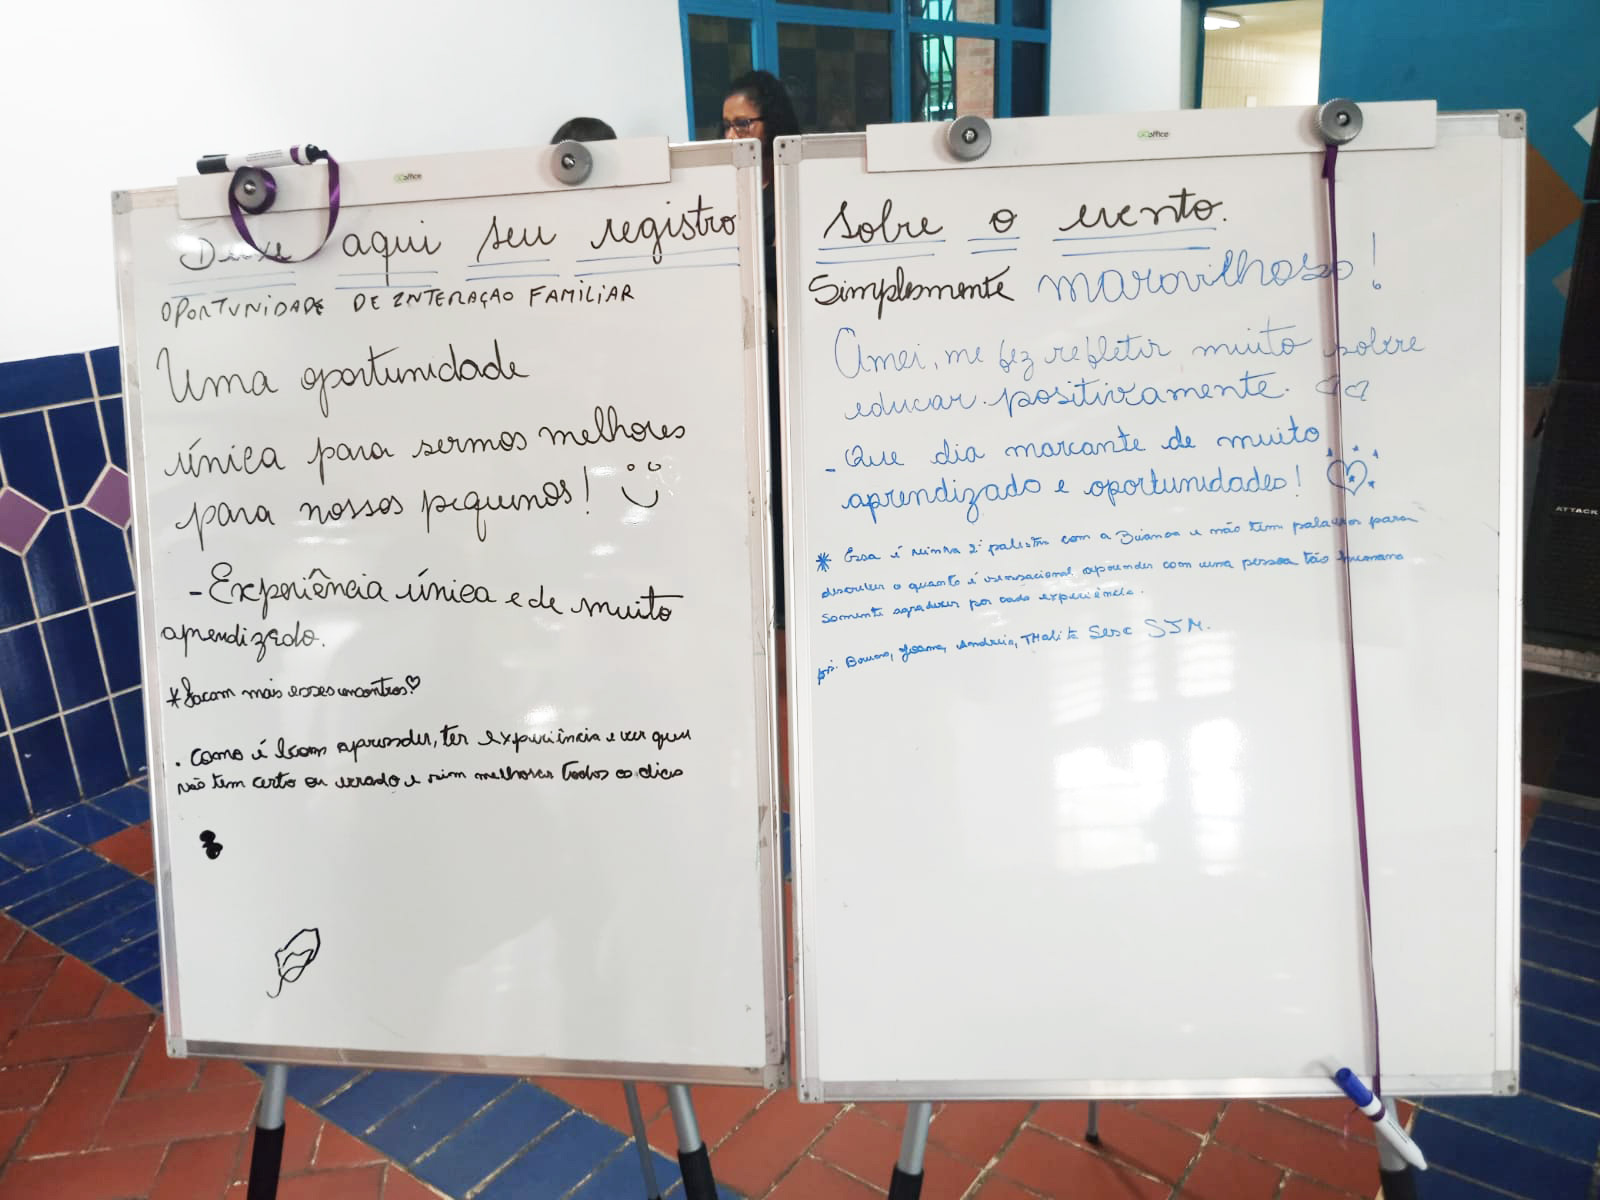 Deixe aqui seu registro
OPORTUNIDADE DE INTERAÇÃO FAMILIAR
Uma oportunidade
única para sermos melhores
para nossos pequenos!
- Experiência única e de muito
aprendizado.
* Façam mais esses encontros!
. Como é bom aprender, ter experiência e ver que
não tem certo ou errado e sim melhorar todos os dias
Sobre o evento.
Simplesmente maravilhoso!
Amei, me fez refletir muito sobre
educar positivamente.
- Que dia marcante de muito
aprendizado e oportunidades!
* Essa é minha 2ª palestra com a e não tem palavras para
descrever o quanto é sensacional aprender com uma pessoa tão humana
Somente agradecer por cada experiência.
Joana, Andreia, THalita Sesc SJM.
GOoffice
GOoffice
ATTACK